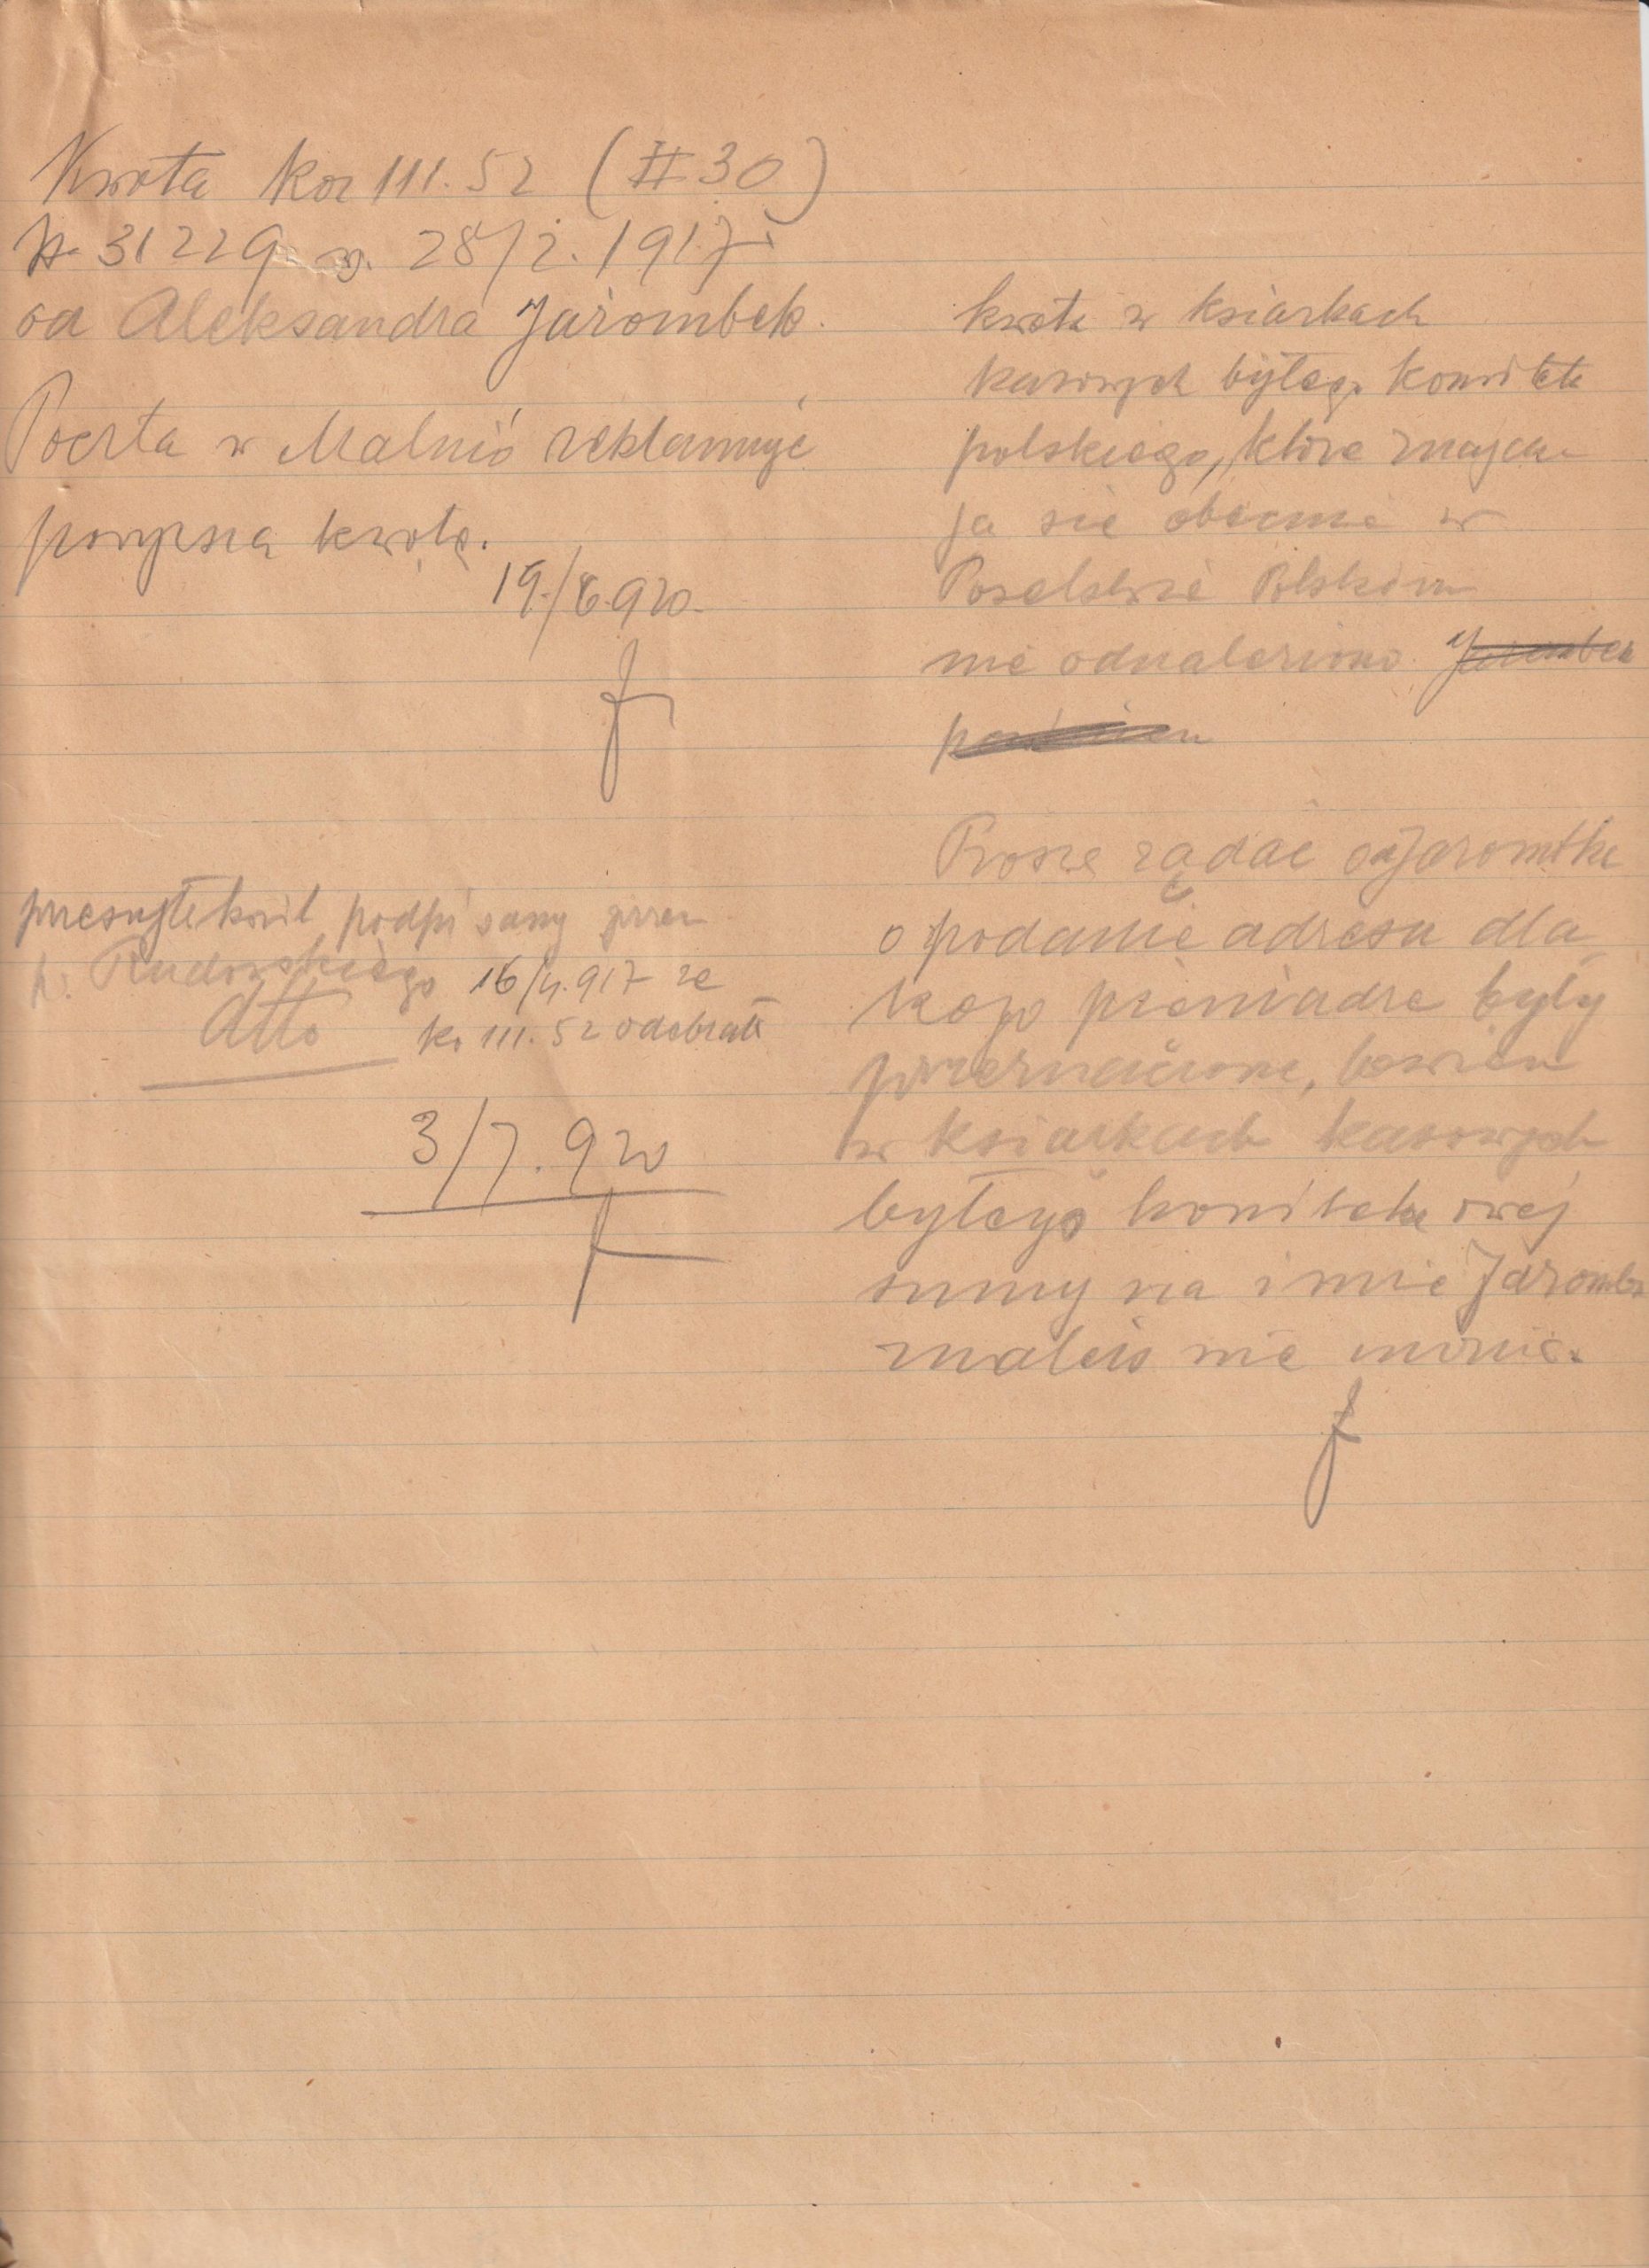 Kwota kor 111.52 (# 30)
N. 31229 28/2. 1917
od Aleksandra Jarombek.
Poczta w Malmö reklamuje
powyższą kwotę.
19./6.920.
przesyła kwit podpisany przez
p. Rudowskiego 16/4.917 że
Atto kr 111.52 odebrał
3/7.920
kwota w książkach
kasowych byłego Komitetu
polskiego, które znajdu-
ja sie obecnie w
Poselstwie Polskim
nie odnaleziono.
Proszę żądać od Jarombka
o podanie adresu dla
kogo pieniądze były
przeznaczone, bowiem
w książkach kasowych
byłego komitetu owej
sumy na imie Jarombk
znaleść nie można.